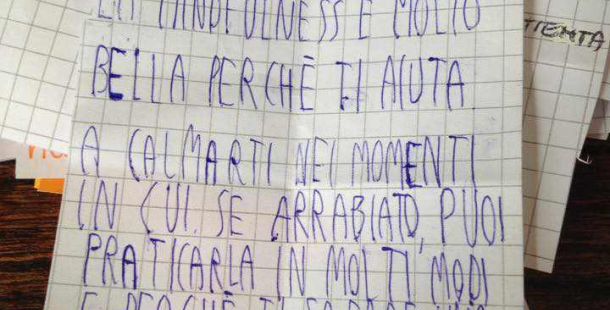 LA MINDFULNESS È MOLTO
BELLA PERCHÈ TI AIUTA
A CALMARTI NEI MOMENTI
IN CUI SE ARRABIATO, PUOI
PRATICARLA IN MOLTI MODI
E PERCHÈ TI
TIENTA